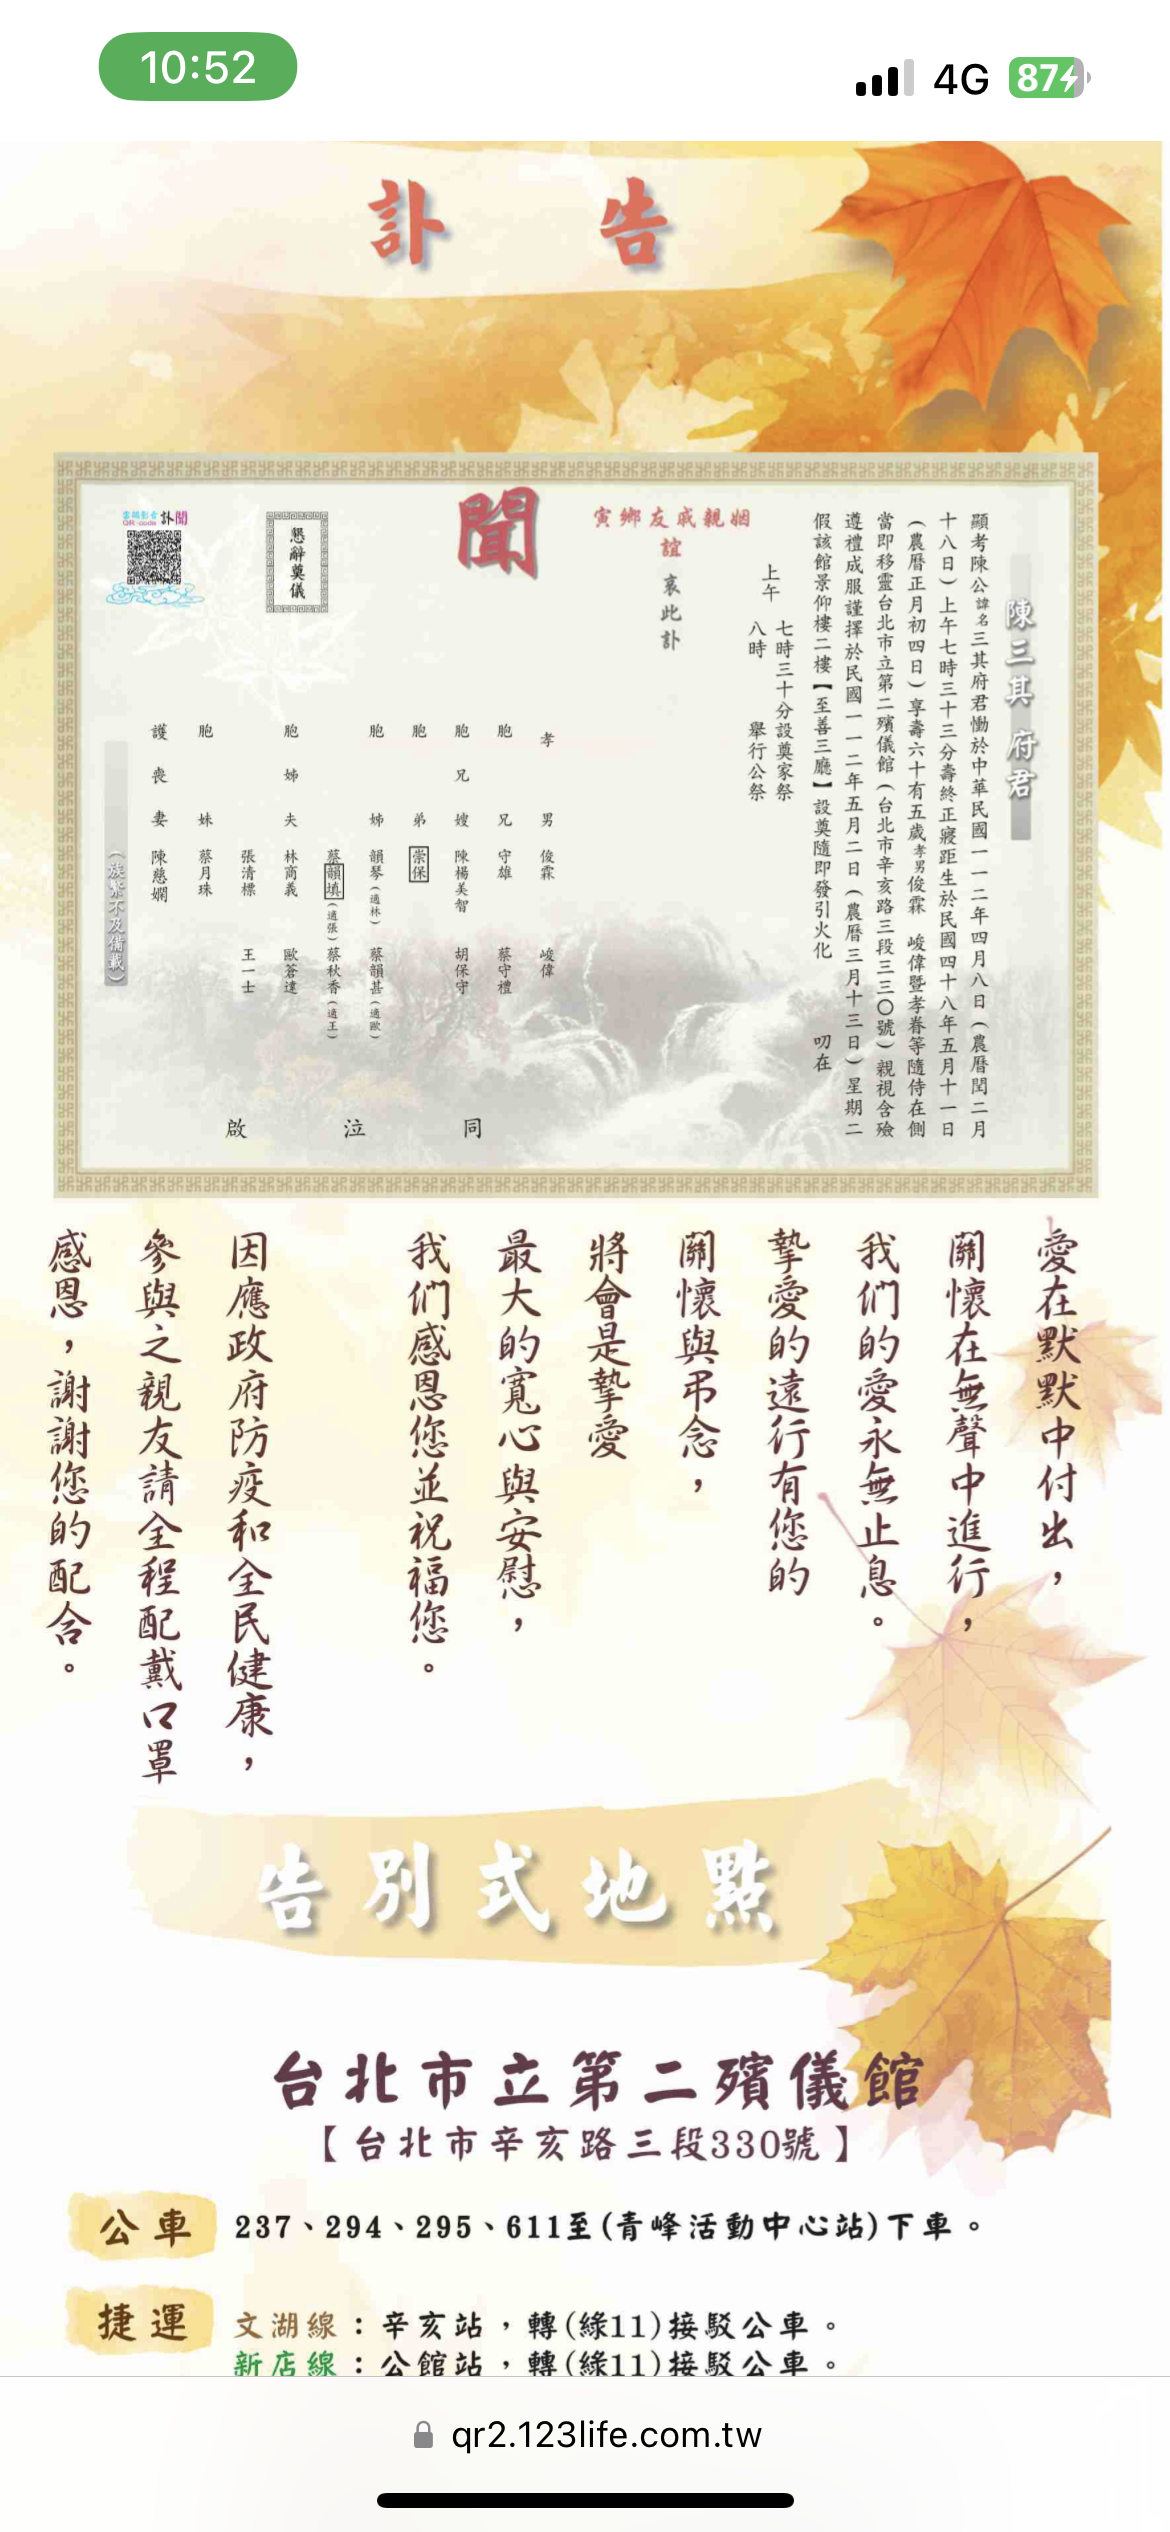 10:52
4G
87
訃告
陳三其 府君
顯考陳公諱名三其府君慟於中華民國一一二年四月八日(農曆閏二月
十八日)上午七時三十三分壽終正寢距生於民國四十八年五月十一日
(農曆正月初四日)享壽六十有五歲孝男俊霖 峻偉暨孝眷等隨侍在側
當即移靈台北市立第二殯儀館(台北市辛亥路三段三三〇號)親視含殮
遵禮成服謹擇於民國一一二年五月二日(農曆三月十三日)星期二
假該館景仰樓二樓【至善三廳】設奠隨即發引火化 叨在
上午 七時三十分設奠家祭
八時 舉行公祭
姻親戚友鄉寅
誼 哀此訃
聞
孝男 俊霖 峻偉
胞兄 守雄 蔡守禮
胞兄嫂 陳楊美智 胡保守
胞弟 崇保
胞姊 韻琴(適林) 蔡韻甚(適歐)
蔡韻填(適張) 蔡秋香(適王)
胞姊夫 林商義 歐蒼達
張清標 王一士
胞妹 蔡月珠
護喪妻 陳慈嫻
同泣啟
(族繁不及備載)
懇辭奠儀
雲端影音 訃聞
QR-code
愛在默默中付出，
關懷在無聲中進行，
我们的愛永無止息。
摯愛的遠行有您的
關懷與弔念，
將會是摯愛
最大的寬心與安慰，
我们感恩您並祝福您。
因應政府防疫和全民健康，
參與之親友請全程配戴口罩
感恩，謝謝您的配合。
告別式地點
台北市立第二殯儀館
【台北市辛亥路三段330號】
公車 237、294、295、611至(青峰活動中心站)下車。
捷運 文湖線：辛亥站，轉(綠11)接駁公車。
新店線：公館站，轉(綠11)接駁公車。
qr2.123life.com.tw